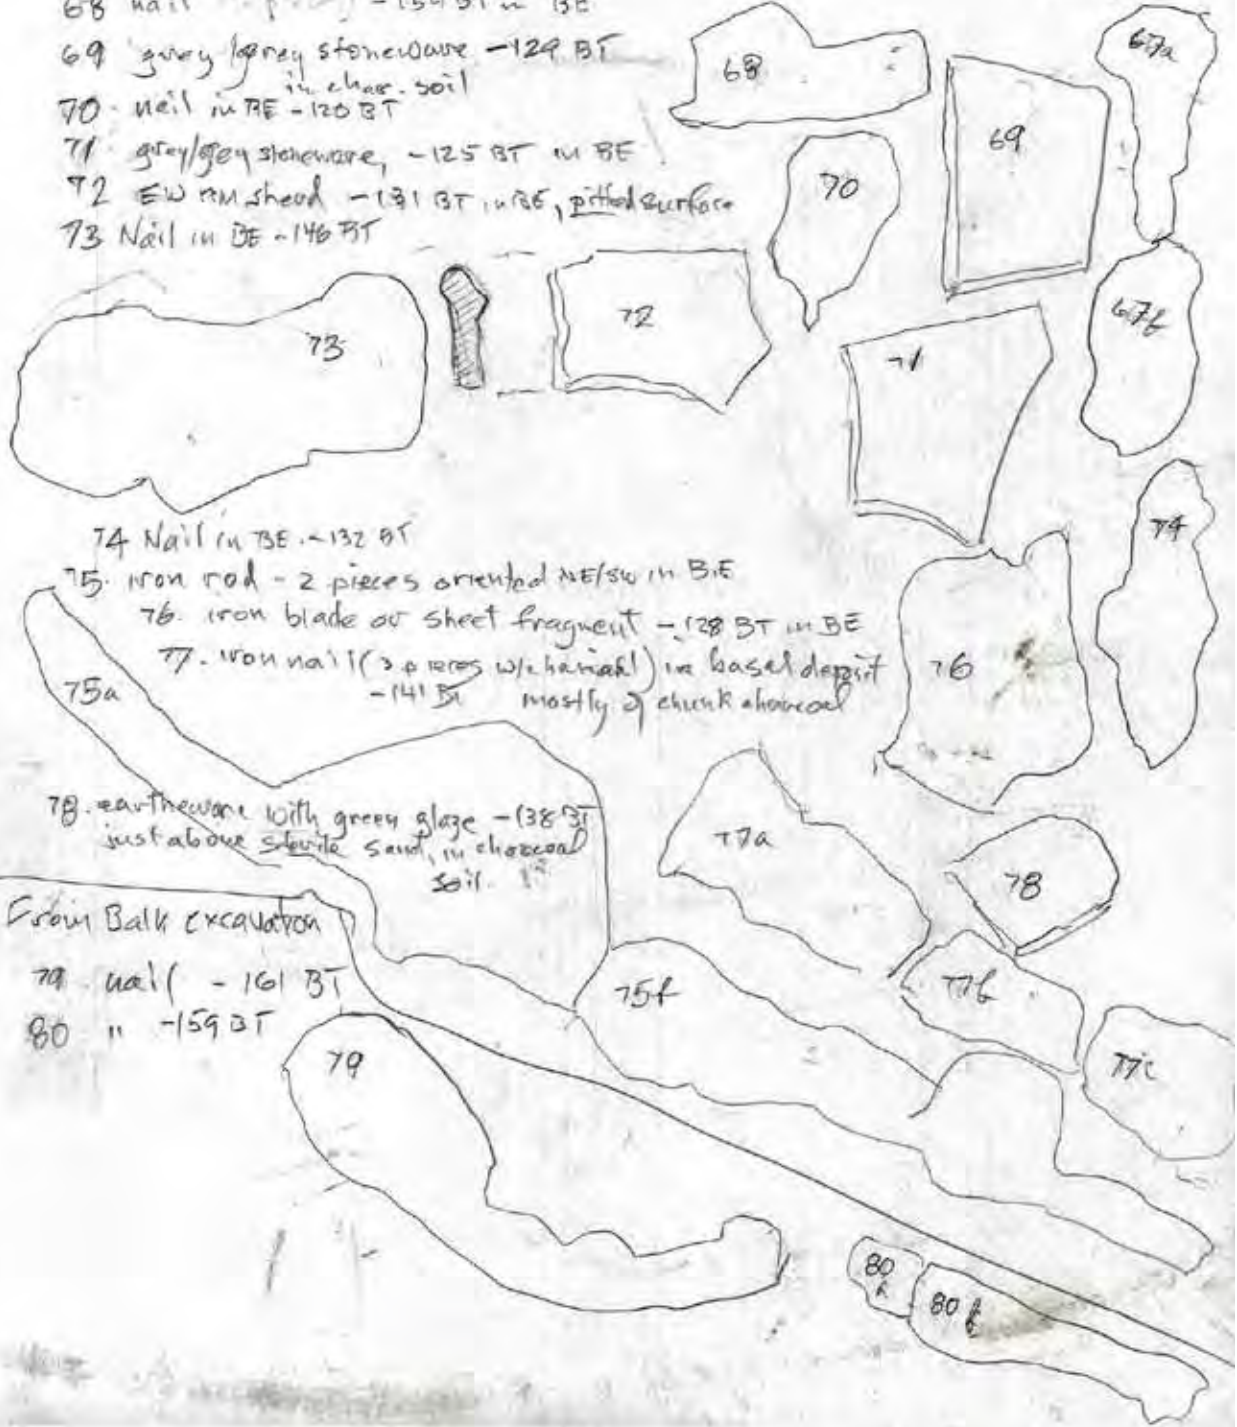 68 nail - 154 BT in BE
69 grey/grey stoneware -129 BT
in char. soil
70. nail in BE -120 BT
71 grey/grey stoneware, -125 BT in BE
72 EW RM sherd -131 BT in BE, pitted surface
73 Nail in BE -146 BT
68
67a
69
70
67b
72
73
71
74 Nail in BE. -132 BT
75. iron rod - 2 pieces oriented NE/SW in B.E
76. iron blade or sheet fragment -128 BT in BE
77. iron nail (3 pieces w/charcoal) in basal deposit
-141 BT mostly of chunk charcoal
74
76
75a
78. eartheware with green glaze -138 BT
just above sterile sand, in charcoal
soil.
77a
78
From Balk excavation
79. nail - 161 BT
80 " -159 BT
75b
77b
77c
79
80
a
80 b